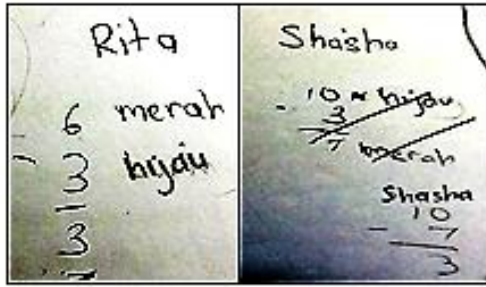 Rita
6 merah
- 3 hijau
3
Shasha
10 hijau
- 3
7 merah
Shasha
10
- 7
3